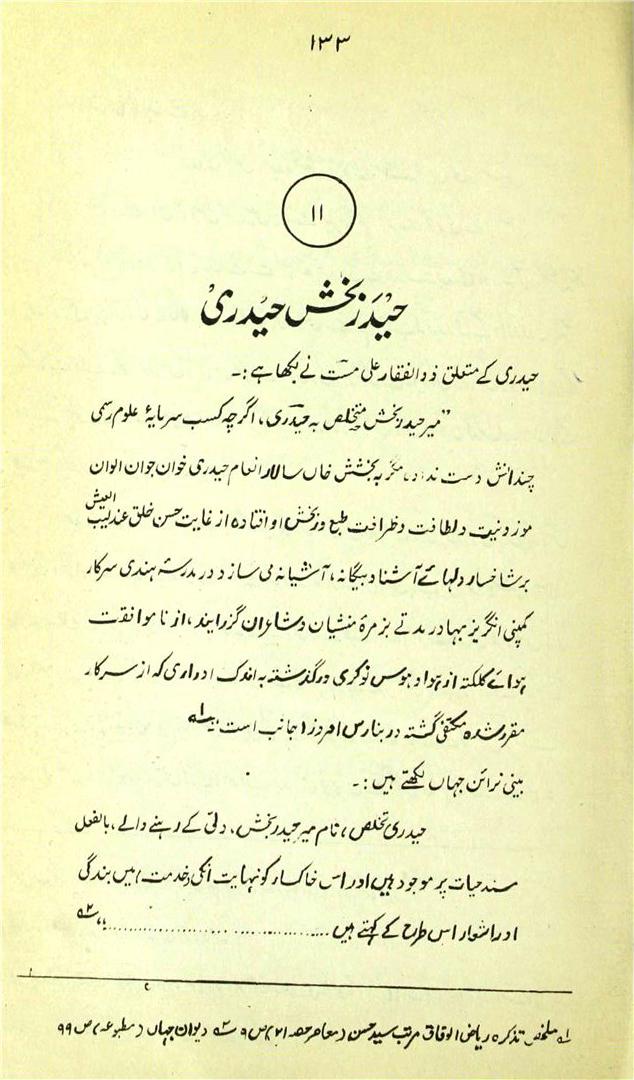 ۱۳۳
۱۱
حیدر بخش حیدری
حیدری کے متعلق ذوالفقار علی مست نے لکھا ہے :۔
"میر حیدر بخش متخلص بہ حیدری، اگرچہ کسب سرمایۂ علوم رسمی
چندانش دست نداد، مگر بہ بخشش خاں سالار انعام حیدری خوان جوان الوان
موزونیت و لطافت و ظرافت طبع وزبخش او افتادہ از غایت حسن خلق عندلیب العیش
برشاخسار دلہائے آشنا و بیگانہ، آشیانہ می سازد در مدرسۂ ہندی سرکار
کمپنی انگریز بہادر مدتے بزمرۂ منشیان و شاعران گزرایند، از ناموافقت
ہوائے کلکتہ از ہوا و ہوس نوکری درگذشتہ بہ اندک ادواری کہ از سرکار
مقرر شدہ مکتفی گشتہ در بنارس امروز جانب است" لہ
بینی نرائن جہاں لکھتے ہیں :۔
حیدری تخلص، نام میر حیدر بخش، دلی کے رہنے والے، بالفعل
مسند حیات پر موجود ہیں اور اس خاکسار کو نہایت انکی (خدمت) میں بندگی
اور اشعار اس طرح کے کہتے ہیں ..............................،، ۲ہ
لہ ملخص تذکرہ ریاض الوفاق مرتب سید حسن (معاصر حصہ ۲۱) ص ۹ ۲ہ دیوان جہاں (مطبوعہ) ص ۹۹